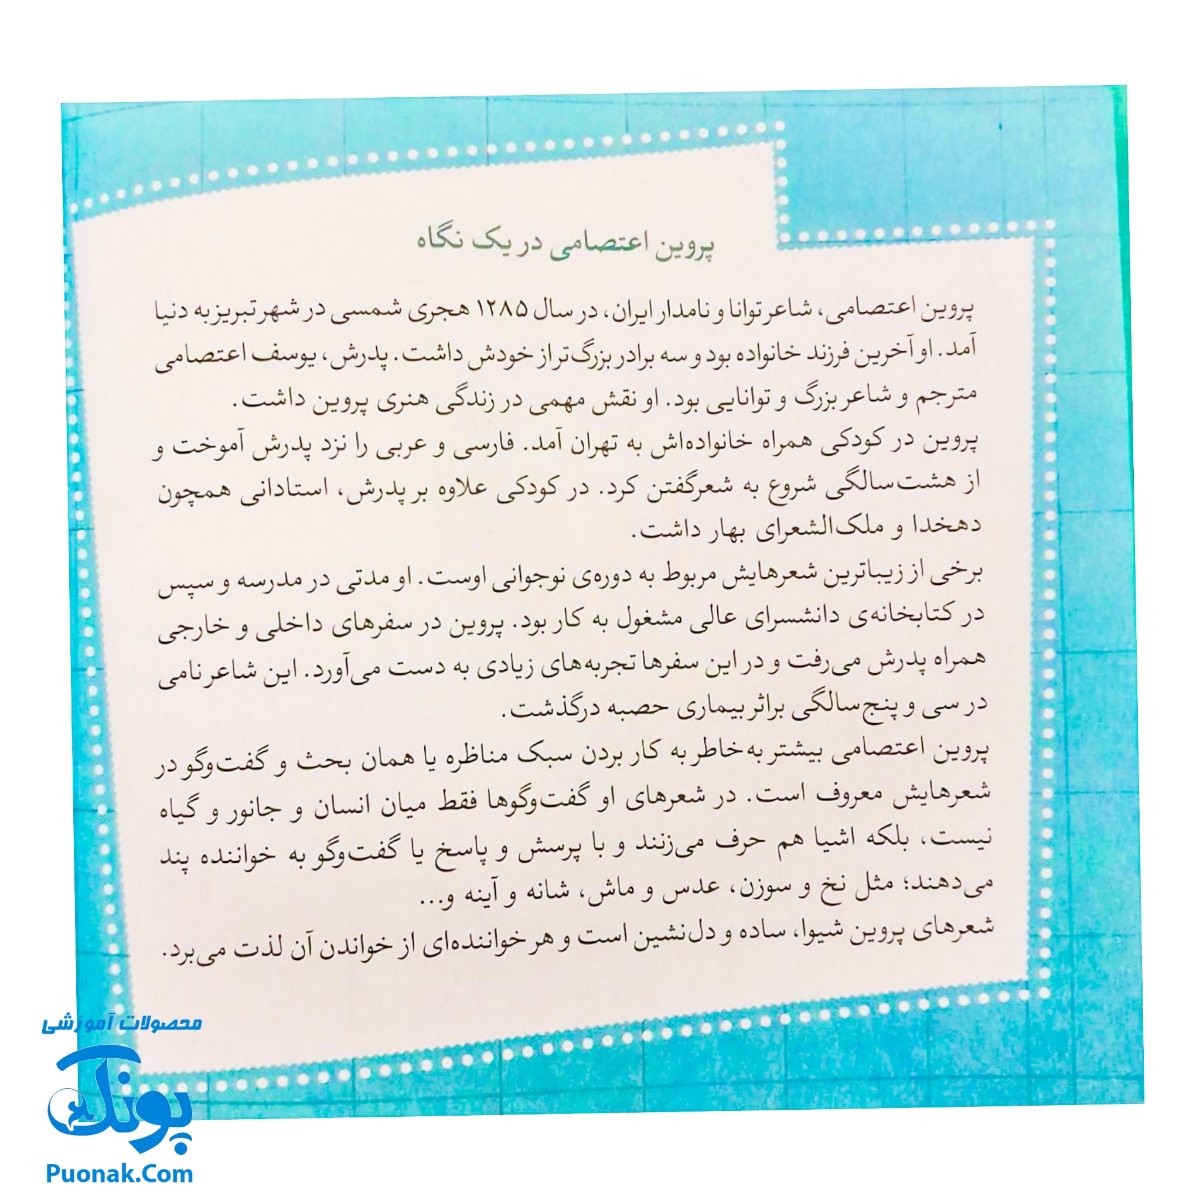 پروین اعتصامی در یک نگاه
پروین اعتصامی، شاعر توانا و نامدار ایران، در سال ۱۲۸۵ هجری شمسی در شهر تبریز به دنیا
آمد. او آخرین فرزند خانواده بود و سه برادر بزرگ‌تر از خودش داشت. پدرش، یوسف اعتصامی
مترجم و شاعر بزرگ و توانایی بود. او نقش مهمی در زندگی هنری پروین داشت.
پروین در کودکی همراه خانواده‌اش به تهران آمد. فارسی و عربی را نزد پدرش آموخت و
از هشت‌سالگی شروع به شعرگفتن کرد. در کودکی علاوه بر پدرش، استادانی همچون
دهخدا و ملک‌الشعرای بهار داشت.
برخی از زیباترین شعرهایش مربوط به دوره‌ی نوجوانی اوست. او مدتی در مدرسه و سپس
در کتابخانه‌ی دانشسرای عالی مشغول به کار بود. پروین در سفرهای داخلی و خارجی
همراه پدرش می‌رفت و در این سفرها تجربه‌های زیادی به دست می‌آورد. این شاعر نامی
در سی و پنج‌سالگی براثر بیماری حصبه درگذشت.
پروین اعتصامی بیشتر به‌خاطر به کار بردن سبک مناظره یا همان بحث و گفت‌وگو در
شعرهایش معروف است. در شعرهای او گفت‌وگوها فقط میان انسان و جانور و گیاه
نیست، بلکه اشیا هم حرف می‌زنند و با پرسش و پاسخ یا گفت‌وگو به خواننده پند
می‌دهند؛ مثل نخ و سوزن، عدس و ماش، شانه و آینه و...
شعرهای پروین شیوا، ساده و دل‌نشین است و هر خواننده‌ای از خواندن آن لذت می‌برد.
محصولات آموزشی
پونک
Puonak.Com